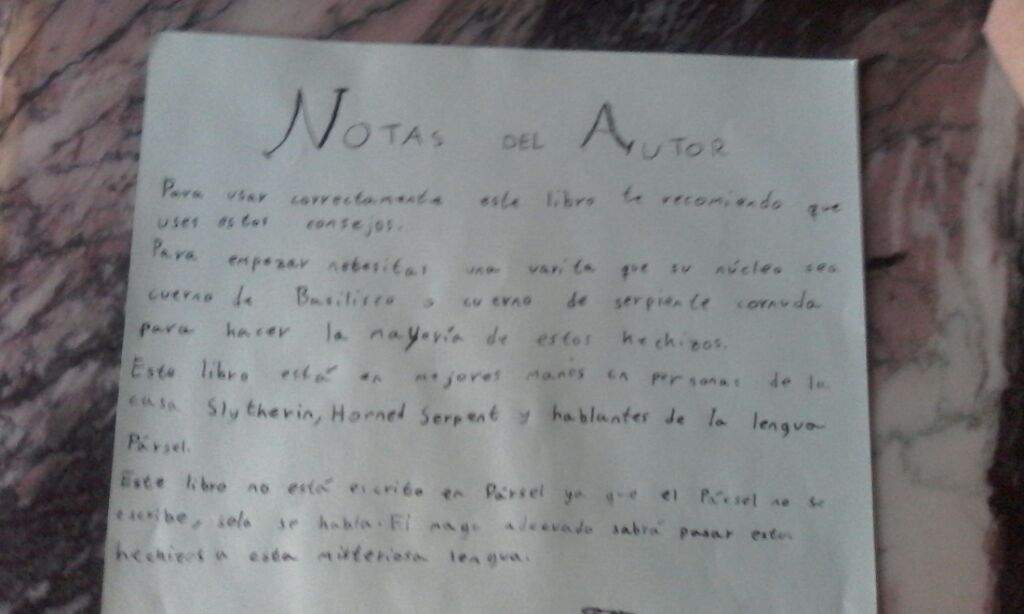 NOTAS DEL AUTOR
Para usar correctamente este libro te recomiendo que
uses estos consejos.
Para empezar nebesitas una varita que su núcleo sea
cuerno de Basilisco o cuerno de serpiente cornuda
para hacer la mayoría de estos hechizos.
Este libro está en mejores manos en personas de la
casa Slytherin, Horned Serpent y hablantes de la lengua
Pársel.
Este libro no está escrito en Pársel ya que el Pársel no se
escribe, solo se habla. El mago adecuado sabrá pasar estos
hechizos a esta misteriosa lengua.